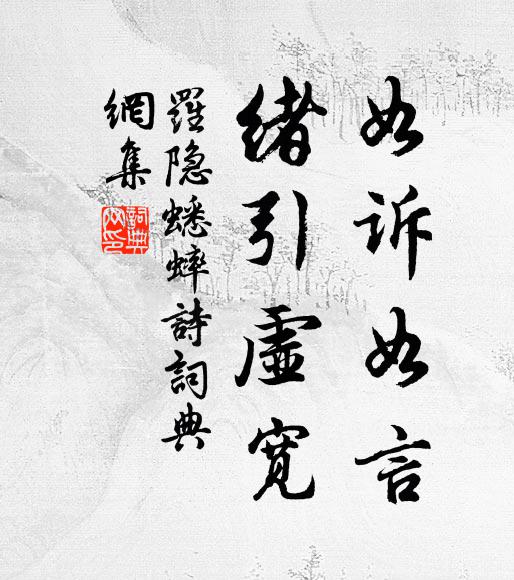 如诉如言
绪引虚宽
羅隐蟋蟀詩詞典
網集
詞典
网印